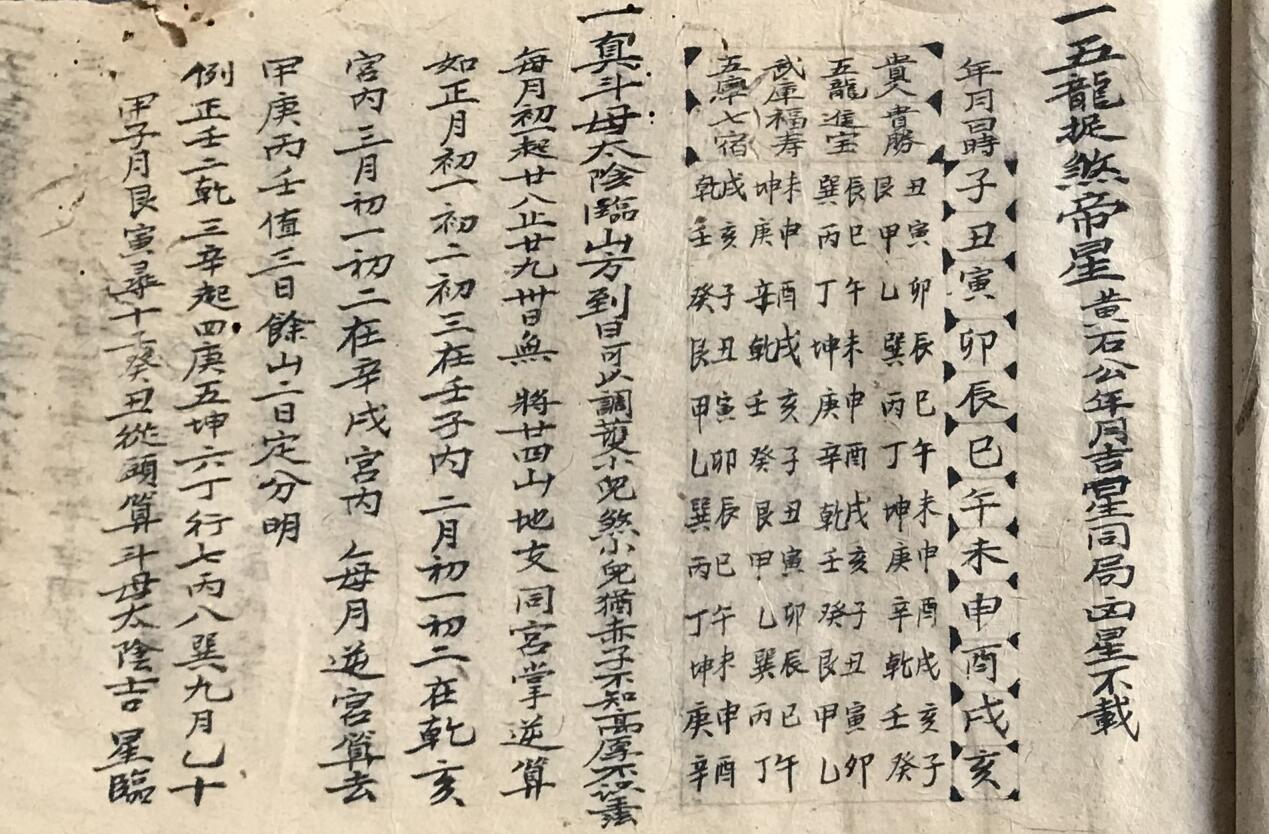 一五龍捉煞帝星 黃石公年月吉星同局凶星不載
年月日時 子丑寅卯辰巳午未申酉戌亥
貴人貴勝 丑艮 寅甲 卯乙 辰巽 巳丙 午丁 未坤 申庚 酉辛 戌乾 亥壬 子癸
五龍進宝 辰巽 巳丙 午丁 未坤 申庚 酉辛 戌乾 亥壬 子癸 丑艮 寅甲 卯乙
武庫福寿 未坤 申庚 酉辛 戌乾 亥壬 子癸 丑艮 寅甲 卯乙 辰巽 巳丙 午丁
五 七宿 戌乾 亥壬 子癸 丑艮 寅甲 卯乙 辰巽 巳丙 午丁 未坤 申庚 酉辛
一真斗母太陰臨山方到日可以調 小兒煞小兒猶赤子不知高厚不
每月初一起廿八止廿九卅日無 將廿四山地支同宮掌逆算
如正月初一初二初三在壬子內 二月初一初二在乾亥
宮內 三月初一初二在辛戌宮內 每月逆宮算去
甲庚丙壬值三日餘山二日定分明
例正壬二乾三辛起四庚五坤六丁行七丙八巽九月乙十
甲子月艮寅尋十二癸丑從頭算斗母太陰吉星臨